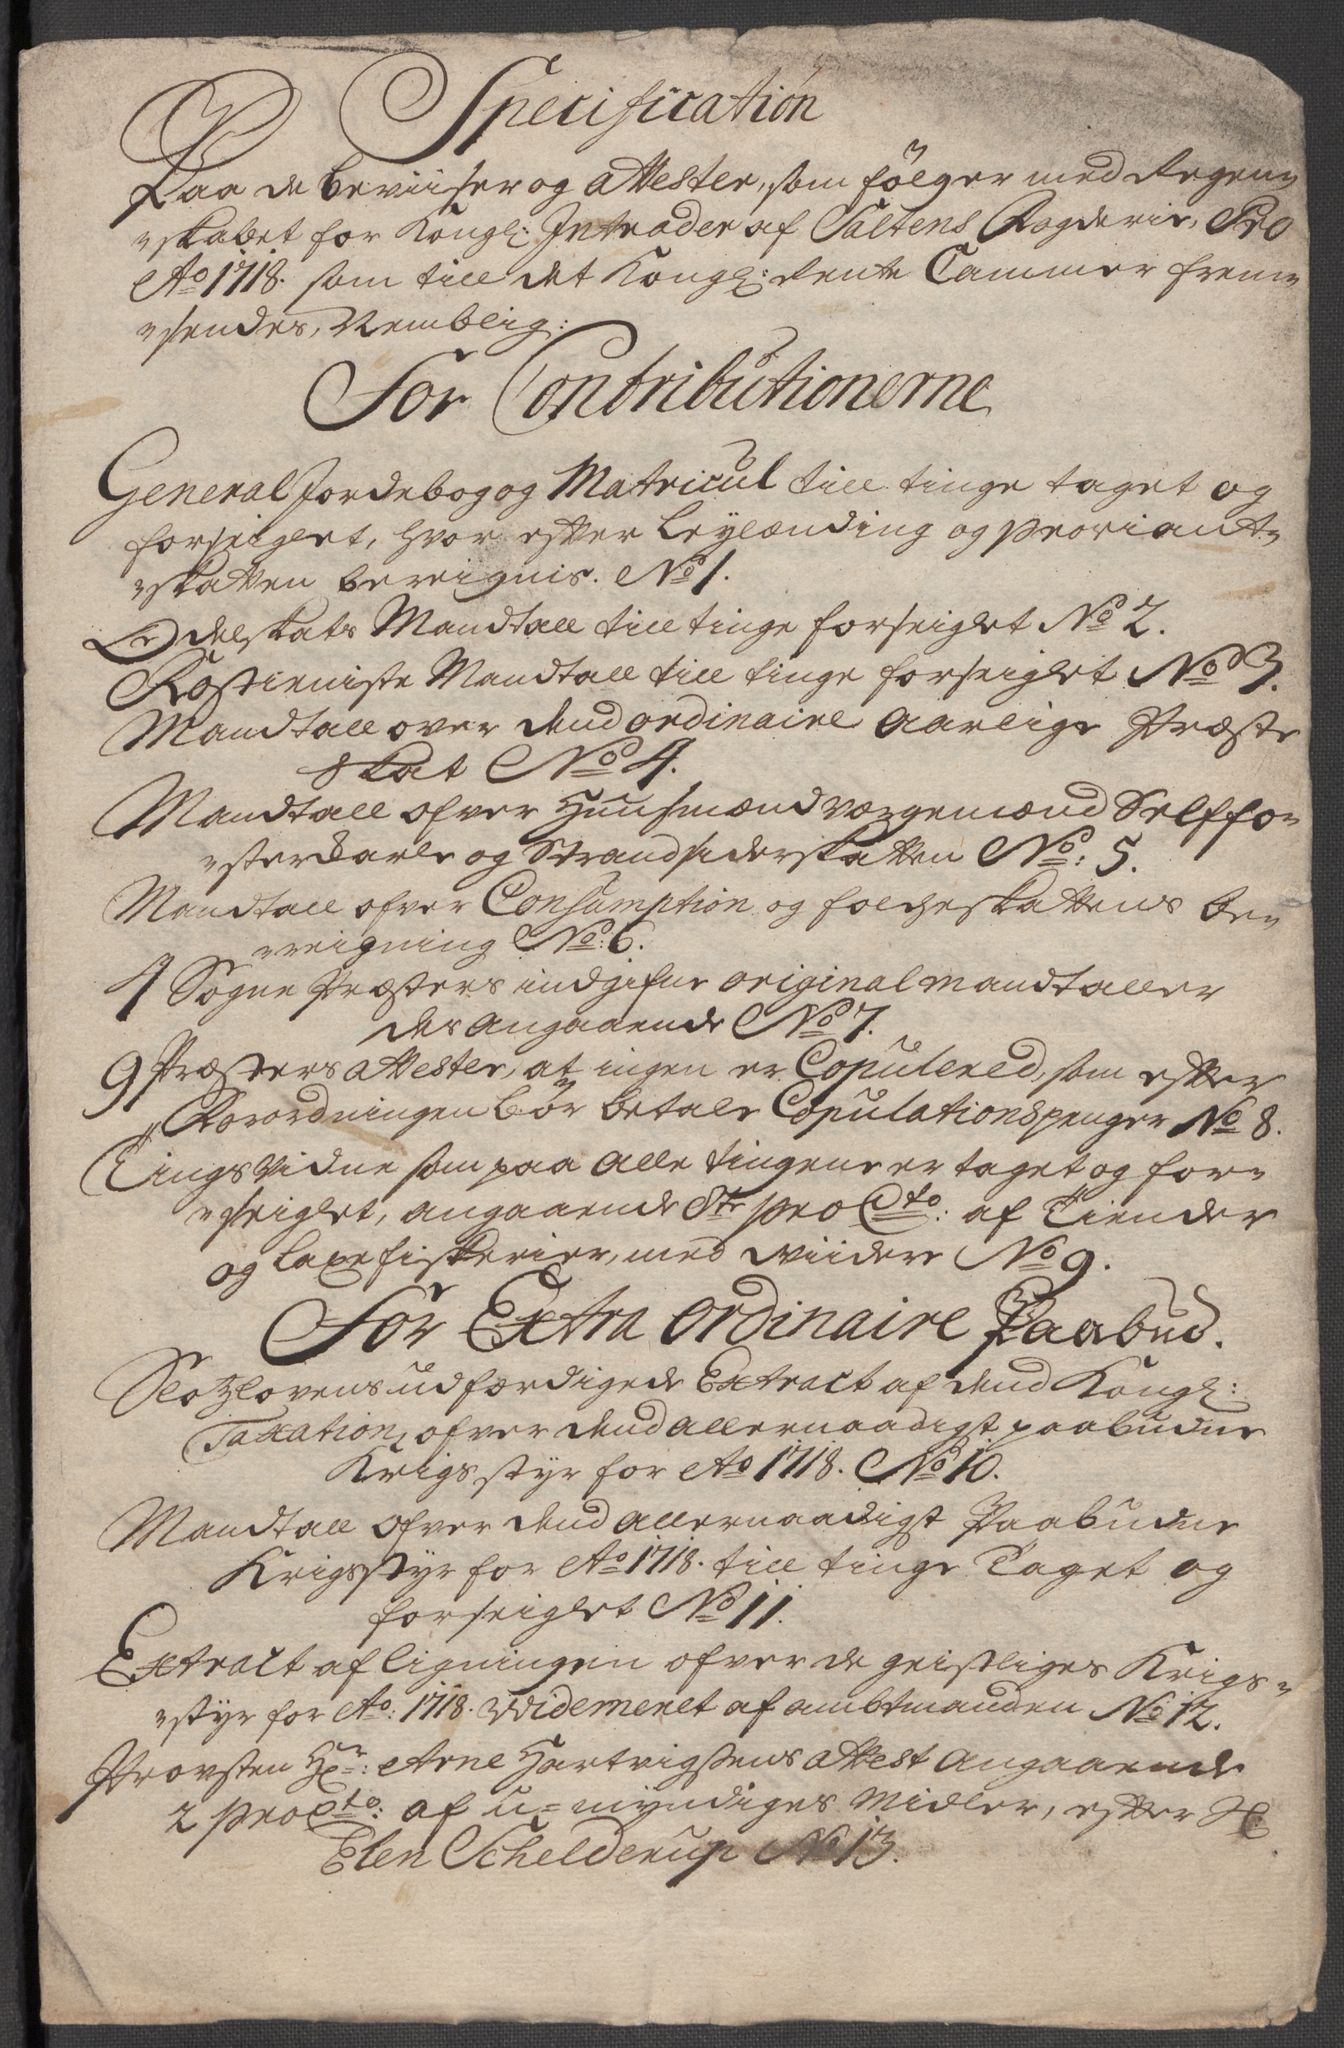 Specification
Paa de beviiser og attester, som følger med Regen„
„skabet for Kongl: Intrader af Saltens Fogderie, Pro
Ao 1718. som till det Kongl: Rente Cammer frem„
„sendes, Nemblig:
For Contributionerne
General Jordebog og Matricul till tinge taget og
forseiglet, hvor efter Leylænding og Proviant„
„skatten bereignis. No 1.
Odelskats Mandtall till tinge forseiglet No 2.
Rostieniste Mandtall till tinge forseiglet No 3.
Mandtall over dend ordinaire aarlige Præste
skat No 4.
Mandtall ofver Huusmænd værgemænd Selffo„
„sterkarle og Strandsiderskatten No: 5.
Mandtall ofver Consumption og folcheskattens be„
„reigning No: 6.
4 Sogne Præsters indgifne original mandtaller
des angaaende No 7.
9 Præsters attester, at ingen er Copulered, som efter
Forordningen bör betale Copulationspenger No 8.
Tings Vidne som paa alle tingene er taget og for„
„seiglet, angaaende 8te pro Cto: af Tiender
og laxefiskerier, med viidere No 9.
For Extra ordinaire Paabud.
Slotzlovens udfærdigede Extract af dend Kongl:
Taxation, ofver dend allernaadigst paabudne
Krigsstyr for Ao 1718. No 10.
Mandtall ofver dend allernaadigst Paabudne
Krigsstyr for Ao 1718. till tinge Taget og
forseiglet No 11.
Extract af ligningen ofver de geistliges Krigs„
„styr for Ao: 1718. Videmeret af ambtmanden No 12.
Provsten Hr: Arne Hartvigsens attest angaaende
2 pro Cto: af u=myndiges Midler, efter Sl:
Elen Schelderup No 13.